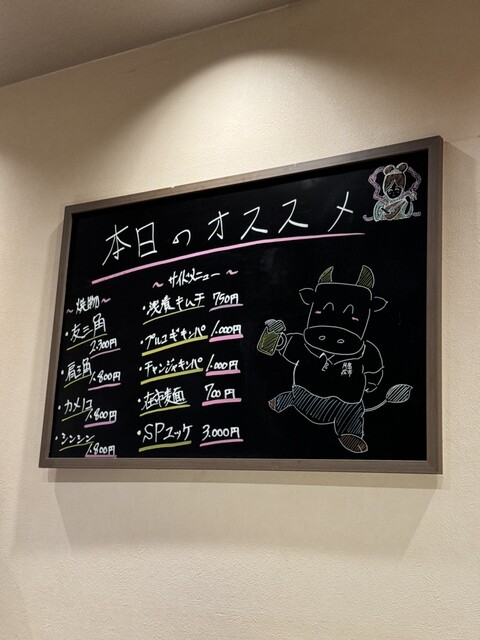 本日のオススメ
～焼物～
・友三角
2.300円
・肩三角
1.800円
・カメノコ
1.800円
・シンシン
1.800円
～サイドメニュー～
・浅漬キムチ 750円
・プルコギキンパ 1.000円
・チャンジャキンパ 1.000円
700円
・SPユッケ 3.000円